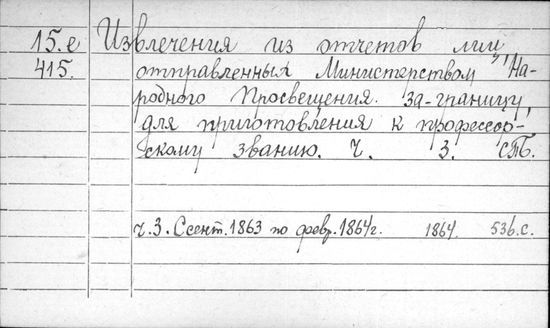 15.е Извлечения из отчетов лиц,
415. отправленных Министерством На-
родного Просвещения за-границу
для приготовления к профессор-
скому званию. Ч. 3. СПб.
ч.3. С сент. 1863 по февр. 1864 г. 1864. 536.с.